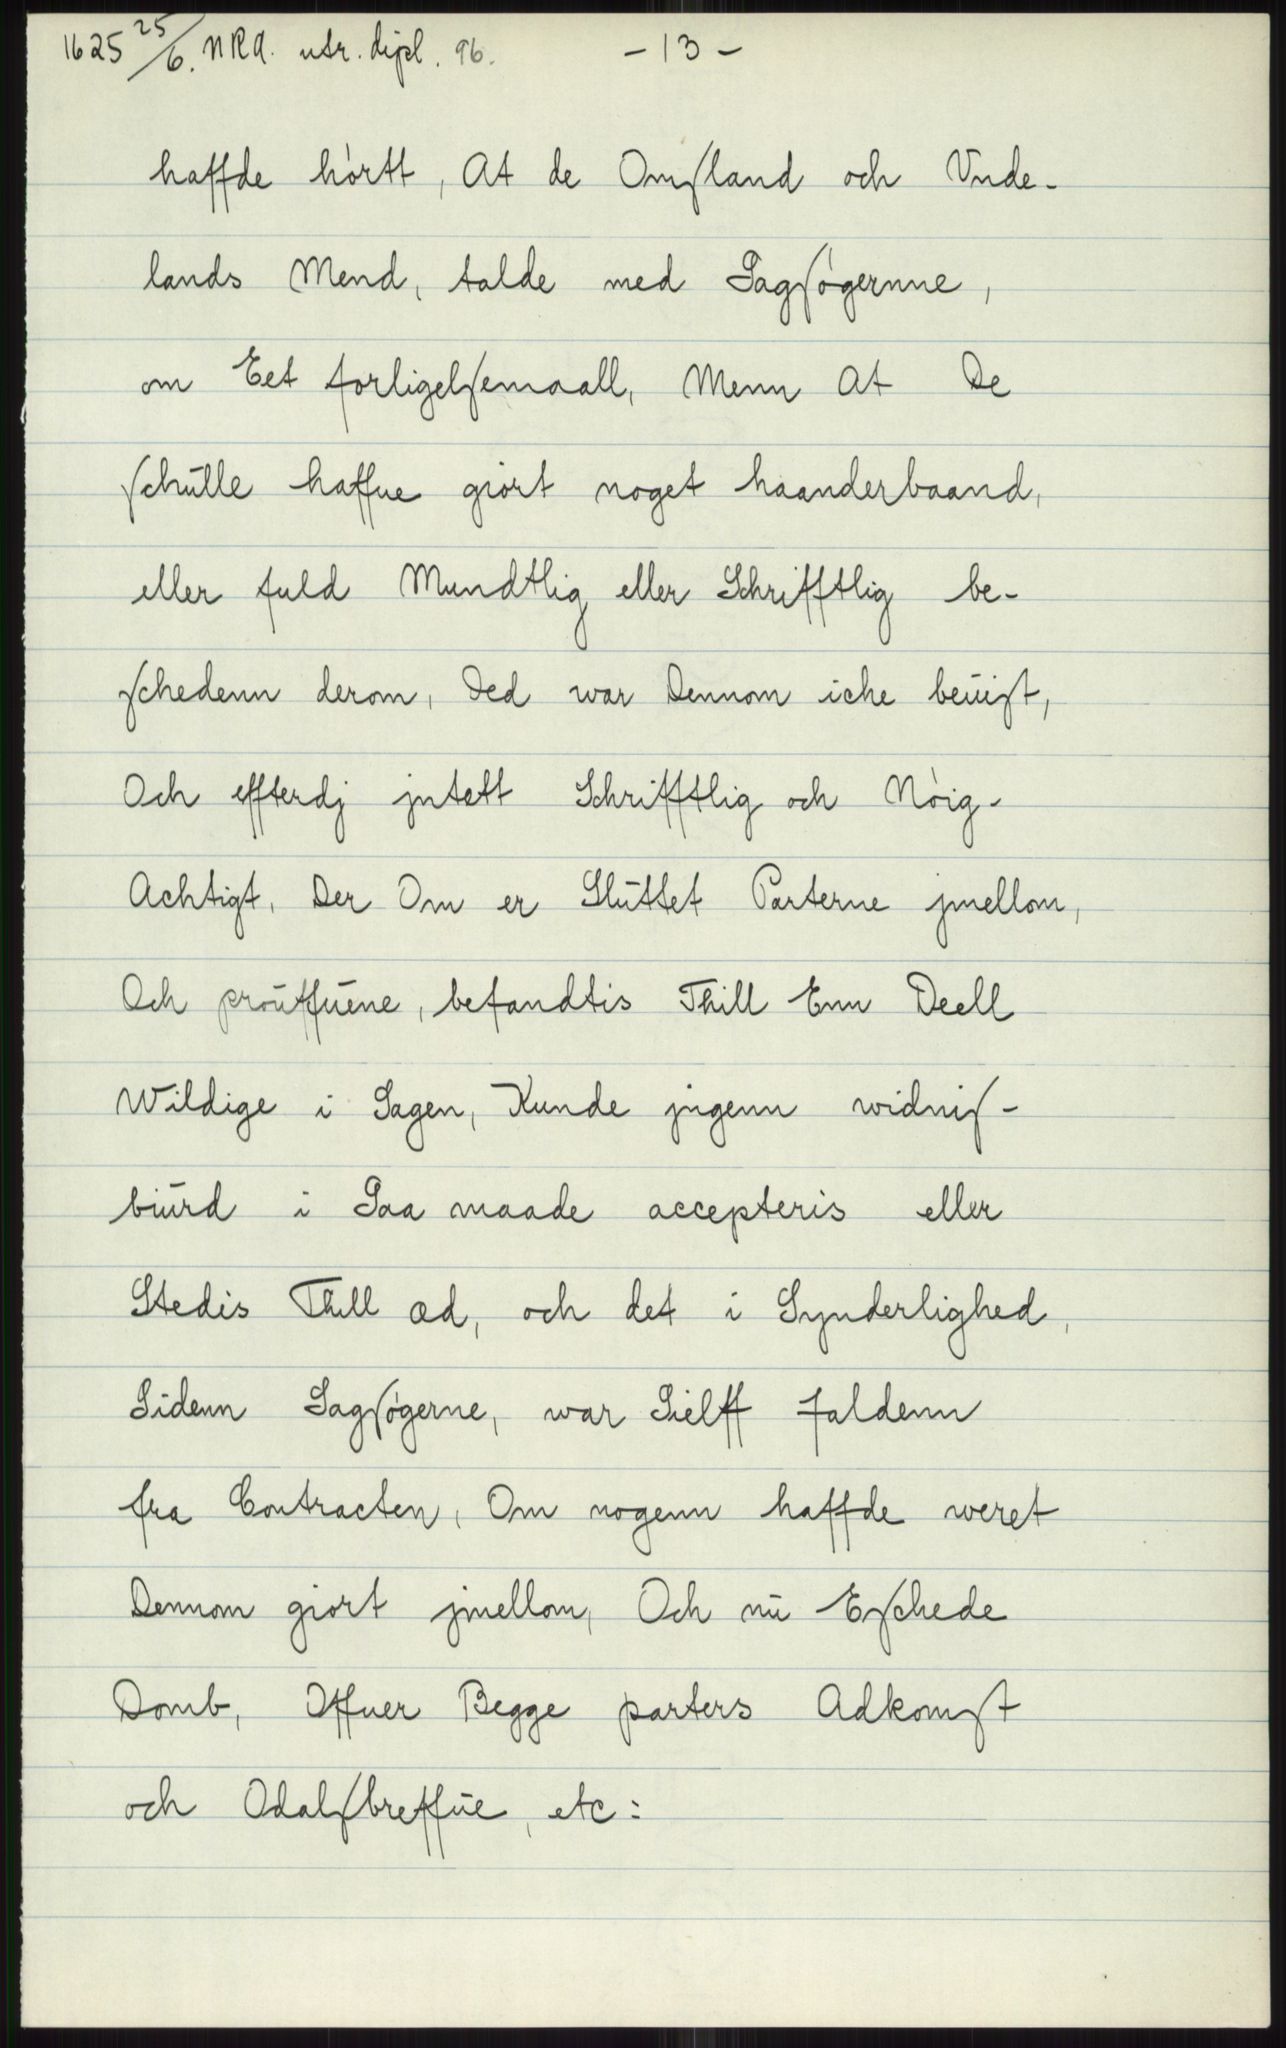 1625 25/6. NRA. utr. dipl. 96. - 13 -
haffde hørtt, At de Omſland och Vnde-
lands Mend, talde med Sagſøgernne,
om Eet forligelſemaall, Menn At De
ſchülle haffue giørt noget haanderbaand,
eller fuld Mundtlig eller Schrifftlig be-
ſchedenn derom, Ded war Dennom iche beüiſt,
Och effterdj jntett Schrifftlig och Nøig-
Achtigt, Der Om er Slüttet Parterne jmellom,
Och proüffüene, befandtis Thill Enn Deell
Wildige i Sagen, Kunde jngenn widniſ-
biürd i Saa maade accepteris eller
Stedis Thill æd, och det i Synderlighed,
Sidenn Sagſøgerne, war Sielff faldenn
fra Contracten, Om nogenn haffde weret
Dennom giort jmellom, Och nü Eſchede
Domb, Offuer Begge parters Adkomſt
och Odalſbreffüe, etc: